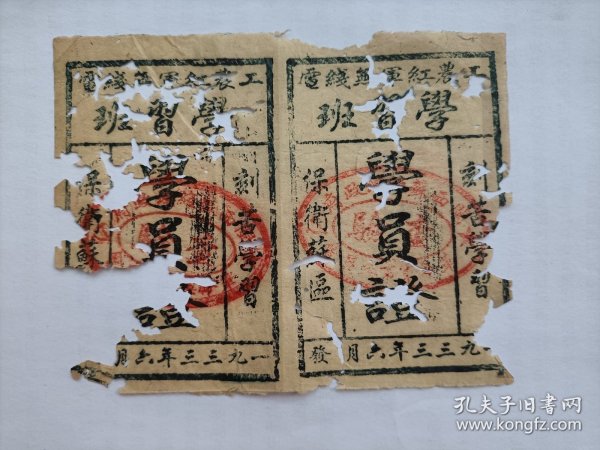 工農紅軍無綫電
學習班
刻苦學習
學員證
保衛蘇區
一九三三年六月發
工農紅軍無綫電
學習班
刻苦學習
學員證
保衛蘇
一九三三年六月
孔夫子旧书网
www.kongfz.com